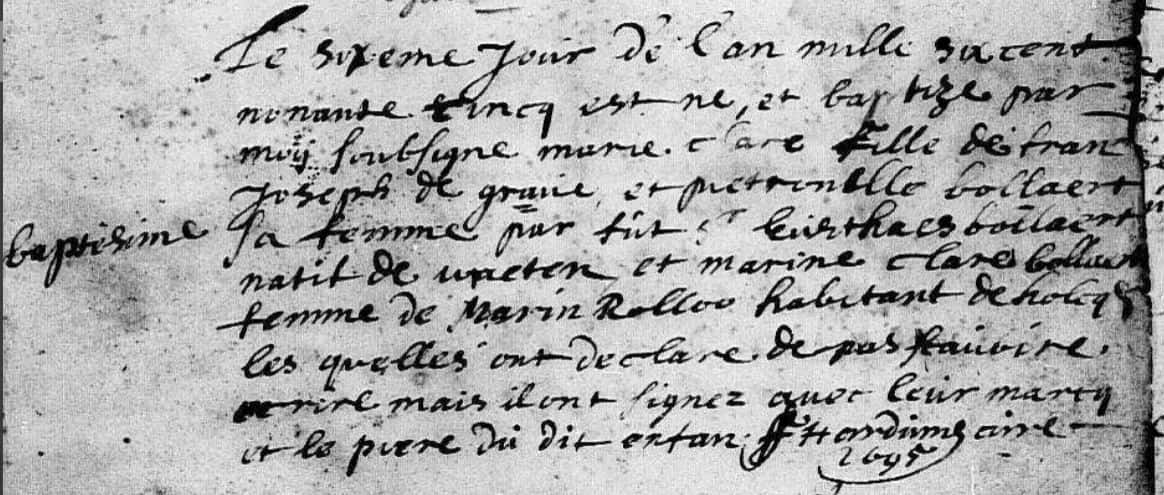 Le sixeme Jour de l'an mille six cent
nonante cincq est ne, et baptize par
moy soubsigne marie clare fille de fran
Joseph de grave, et pietronelle bollaert
baptesime
sa femme par fut Sr bollaert
natif de watten et marine clare bollaert
femme de Marin Rolloo habitant de holcq
les quelles ont declare de pas scavoire
ecrire mais il ont signez avec leur marcq
et le piere du dit enfan curé
1695